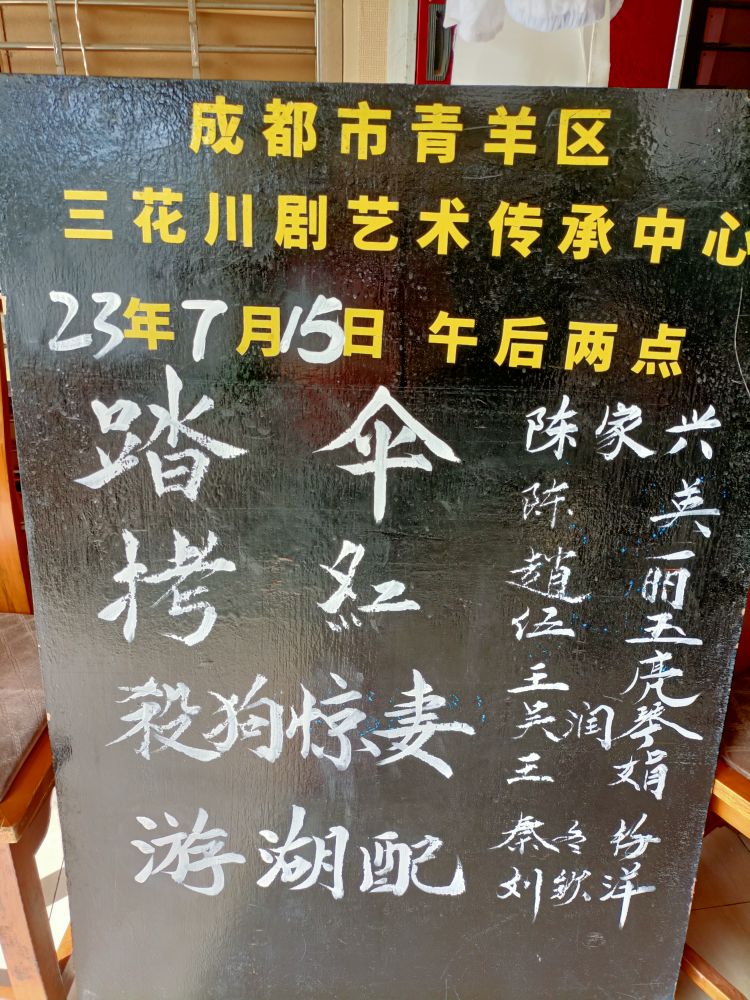 成都市青羊区
三花川剧艺术传承中心
23年7月15日 午后两点
踏伞 陈家兴
陈英
拷红 趙丽
伍玉
殺狗惊妻 王虎
吴润琴
王娟
游湖配 秦冬
刘钦洋